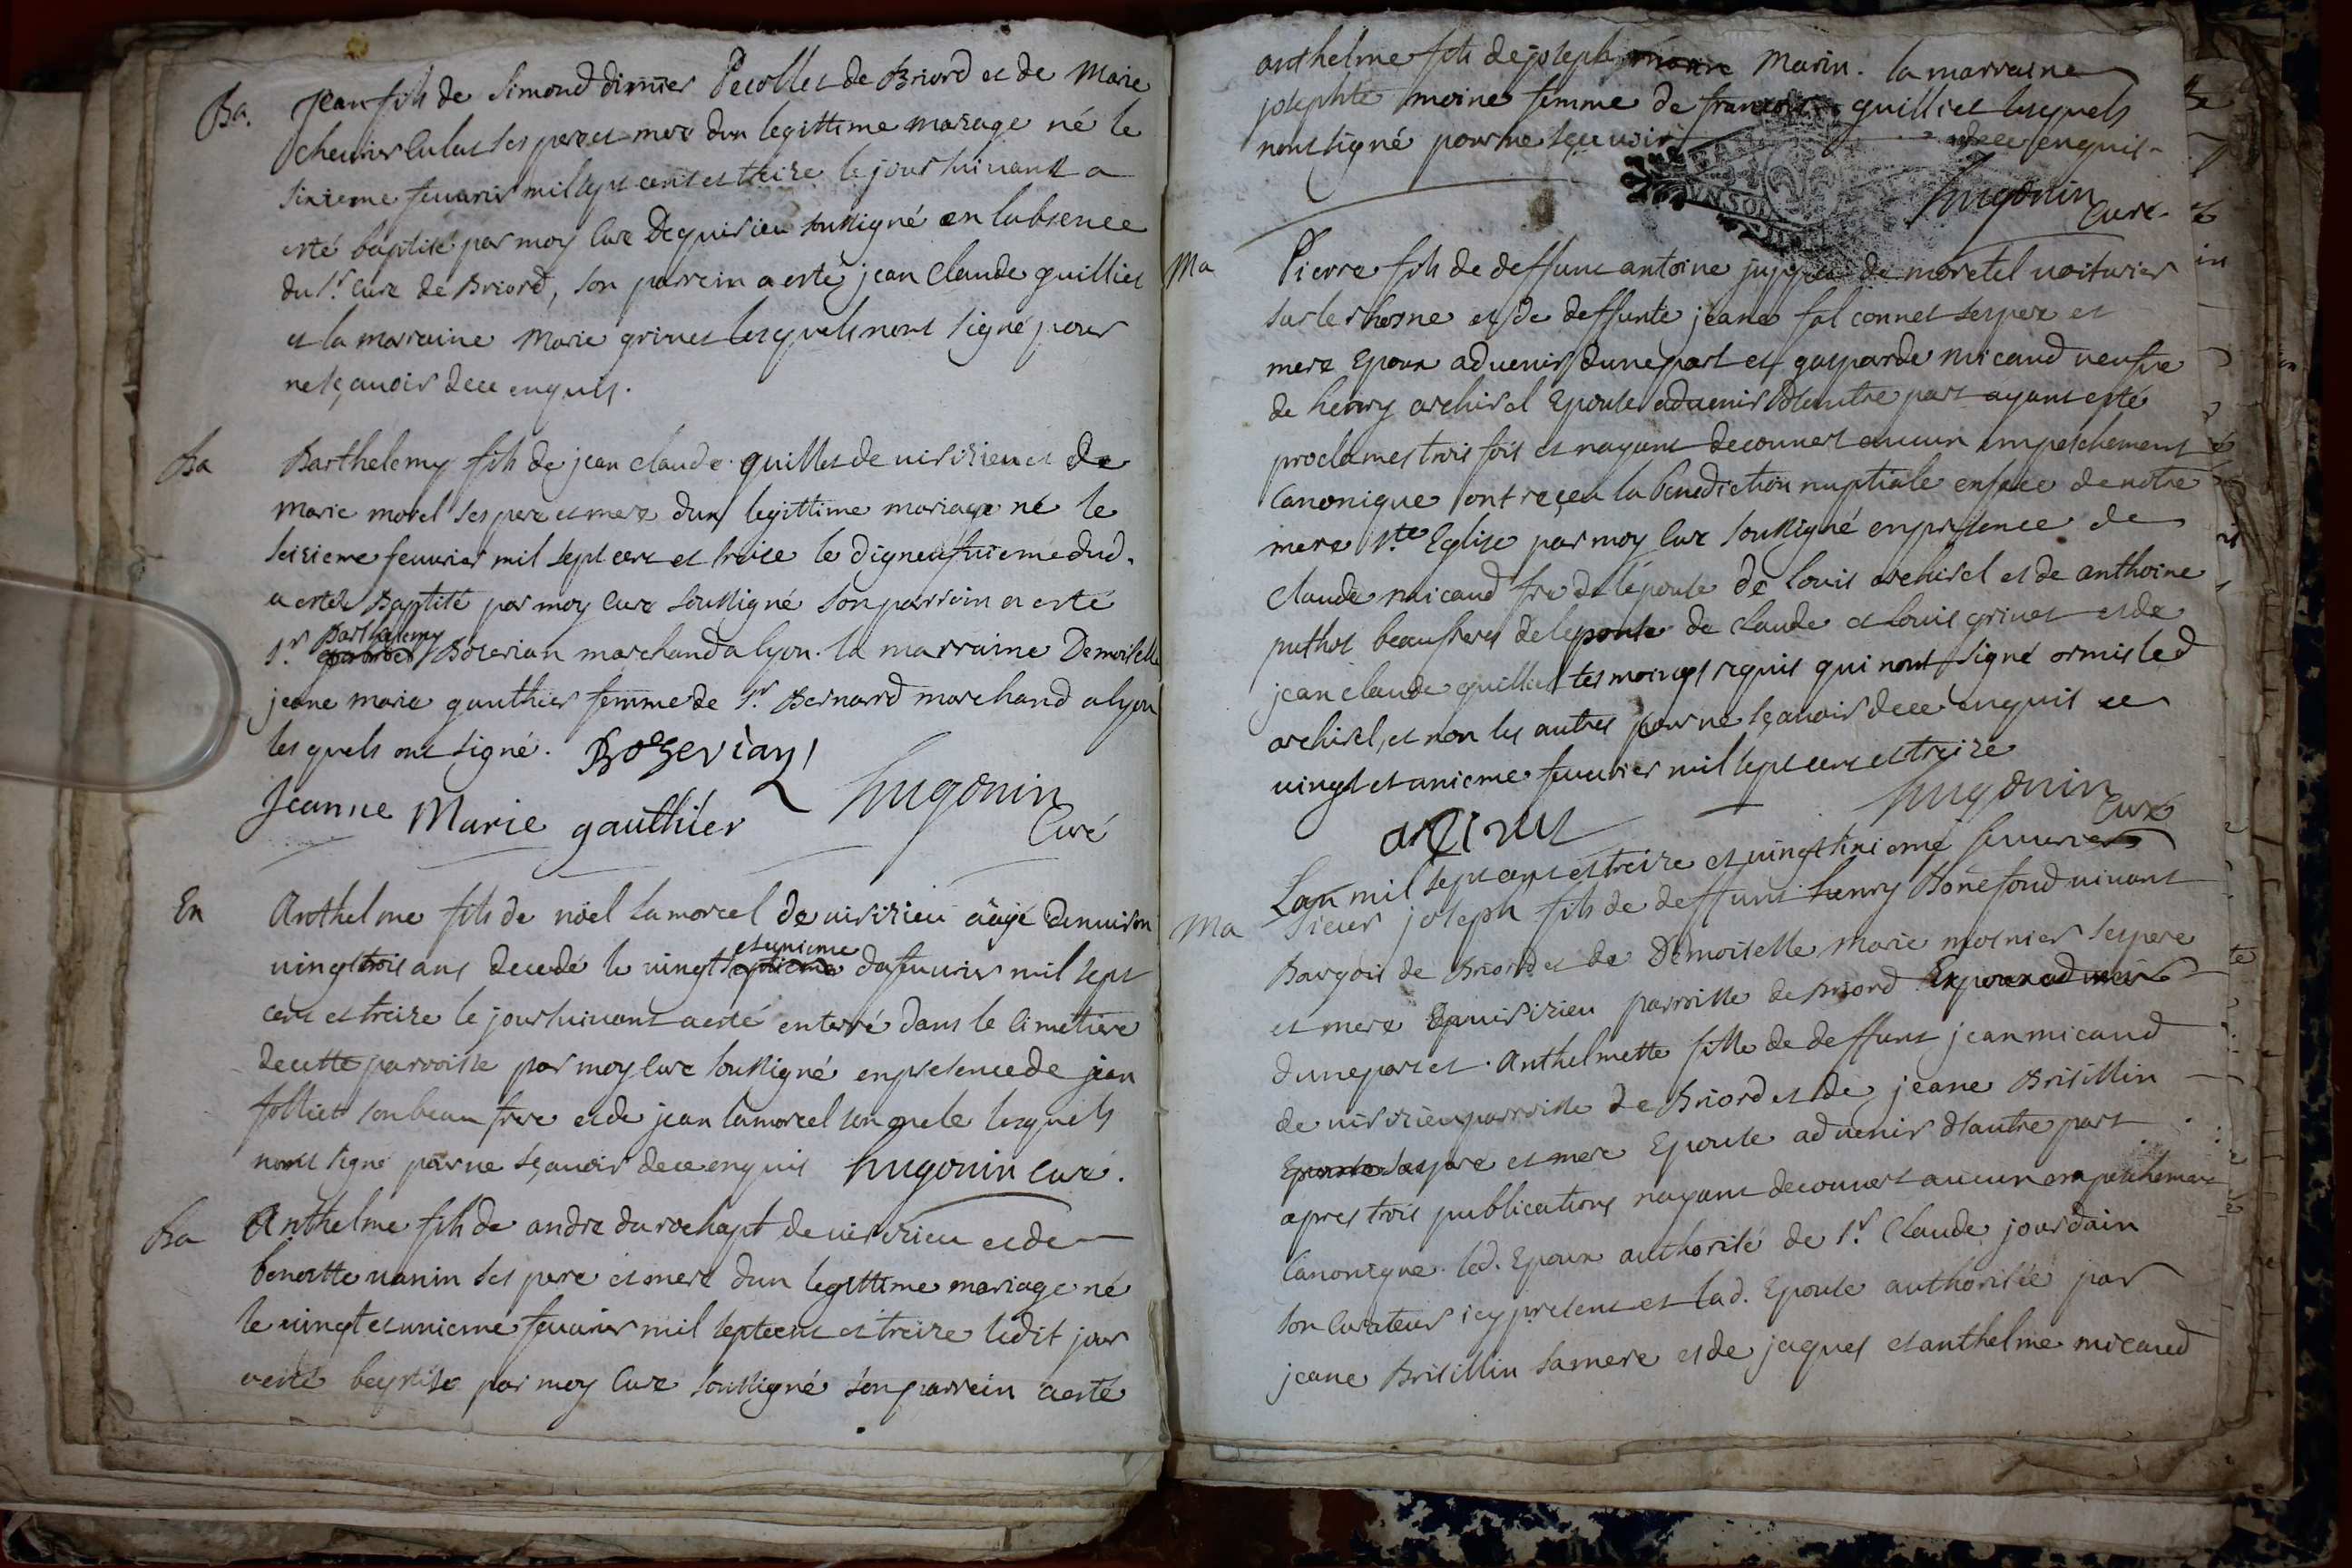 Ba. Jean fils de Simond dimier Pecollet de Briord et de Marie
chevrier Culat ses pere et mere dun legittime mariage né le
sixieme fevurier mil sept cent et treize le jour suivant a
esté baptisé par moy Curé De quirieu soussigné en labsence
du Sr. Curé de Briord, son parrein a esté jean Claude quilliet
et la marraine Marie grinet lesquels nont signé pour
ne sçavoir de ce enquis.
Ba Barthelemy fils de jean claude quillet de virizieu et de
Marie morel ses pere et mere dun legittime mariage né le
seizieme fevurier mil sept cent et treize le digneufvieme dud.
a estez Baptisé par moy Curé soussigné son parrein a esté
Sr. Barthelemy Bozerian marchand a lyon. la marraine Demoiselle
jeane marie gauthier femme de Sr. Bernard marchand a lyon
les quels ont signé. Bozerian
Jeanne Marie gauthier hugonin
Curé
En Anthelme fils de nöel Lamorcel de virizieu aâgé denuiron
vingt trois ans decedé le vingt et unieme du fevurier mil sept
cent et treize le jour suivant a esté enterré dans le Cimetiere
de cette parroisse par moy Curé soussigné en presence de jean
folliet son beau frere et de jean lamorcel son oncle lesquels
nont signé pour ne sçavoir de ce enquis hugonin curé.
Ba Anthelme fils de andre du rochapt de virizieu et de
benoitte vanin ses pere et mere dun legittime mariage né
le vingt et unieme fevurier mil sept cent et treize ledit jour
a esté baptisé par moy Curé soussigné son parrein a esté
anthelme fils de joseph Marin. la marraine
josephte moine femme de francois quilliet lesquels
nont signé pour ne sçavoir de ce enquis
hugonin
Curé.
Ma Pierre fils de deffunt antoine juppet de moretel voiturier
sur le rhosne et de deffunte jeane falconnet ses pere et
mere Epoux advenir dune part et gasparde micaud veufve
de henry archirel Epouse advenir dautre part ayant esté
proclames trois fois et nayant decouvert aucun empeschement
Canonique ont reçeu la benediction nuptiale en face de notre
mere Ste Eglise par moy Curé soussigné en presence de
Claude micaud fre de lepouse de Louis archirel et de anthoine
puthot beaufreres de lepouse de claude et Louis grinet et de
jean claude quilliet tesmoings requis qui nont signé ormis led
archirel, et non les autres pour ne sçavoir de ce enquis ce
vingt et unieme fevurier mil sept cent et treize
hugonin
Curé
Lan mil sept cent et treize et vingt sixieme fevurier
Ma Sieur joseph fils de deffunt henry Bonefond vivant
Bourgois de Briord et de Demoiselle Marie mosnier ses pere
et mere virizieu parroisse de Briord Epoux advenir
dune part et Anthelmette fille de deffunt jean micaud
de virizieu parroisse de Briord et de jeane Brisillin
Epouse ses pere et mere Epouse advenir d'autre part
apres trois publications nayant decouvert aucun empeschement
Canonique led. Epoux authorisé de Sr. Claude jourdain
son Curateur icy present et lad. Epouse authorisée par
jeane Brisillin sa mere et de jaques et anthelme micaud